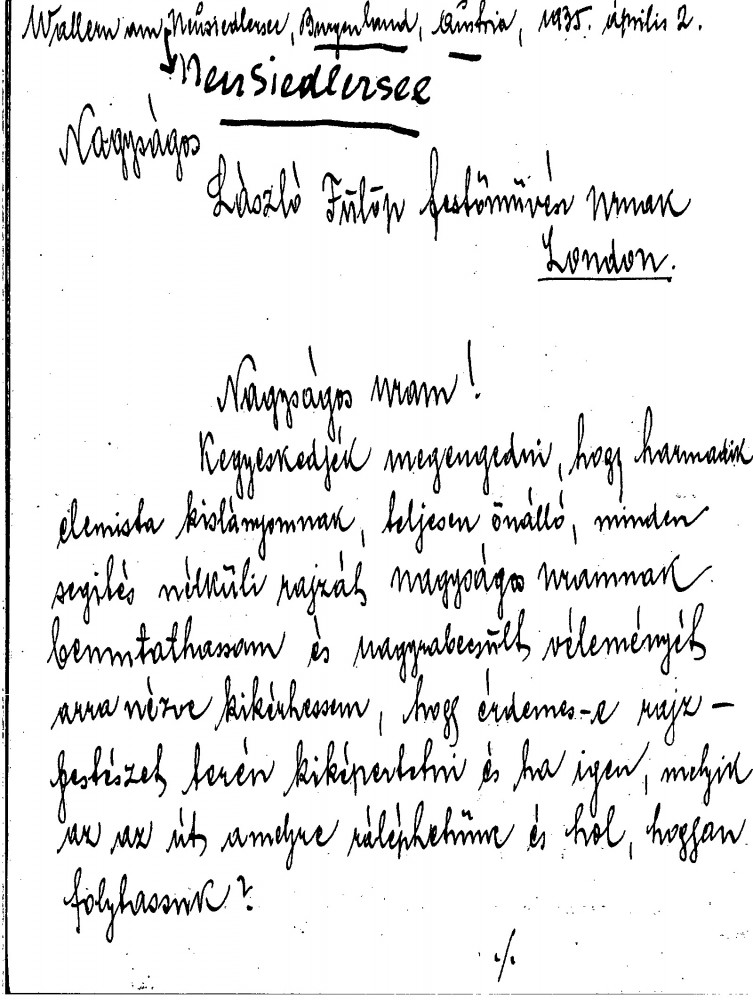 Wallern am Neusiedlersee, Burgenland, Austria, 1935. április 2.
Neusiedlersee
Nagyságos
László Fülöp festőművész urnak
London.
Nagyságos uram!
Kegyeskedjék megengedni, hogy harmadik
elemista kislányomnak, teljesen önálló, minden
segítés nélküli rajzát nagyságos uramnak
bemutathassam és nagyrabecsült véleményét
arra nézve kikérhessem, hogy érdemes-e rajz-
festészet terén kiképeztetni és ha igen, melyik
az az út amelyre ráléphetünk és hol, hogyan
folytassuk?
./.